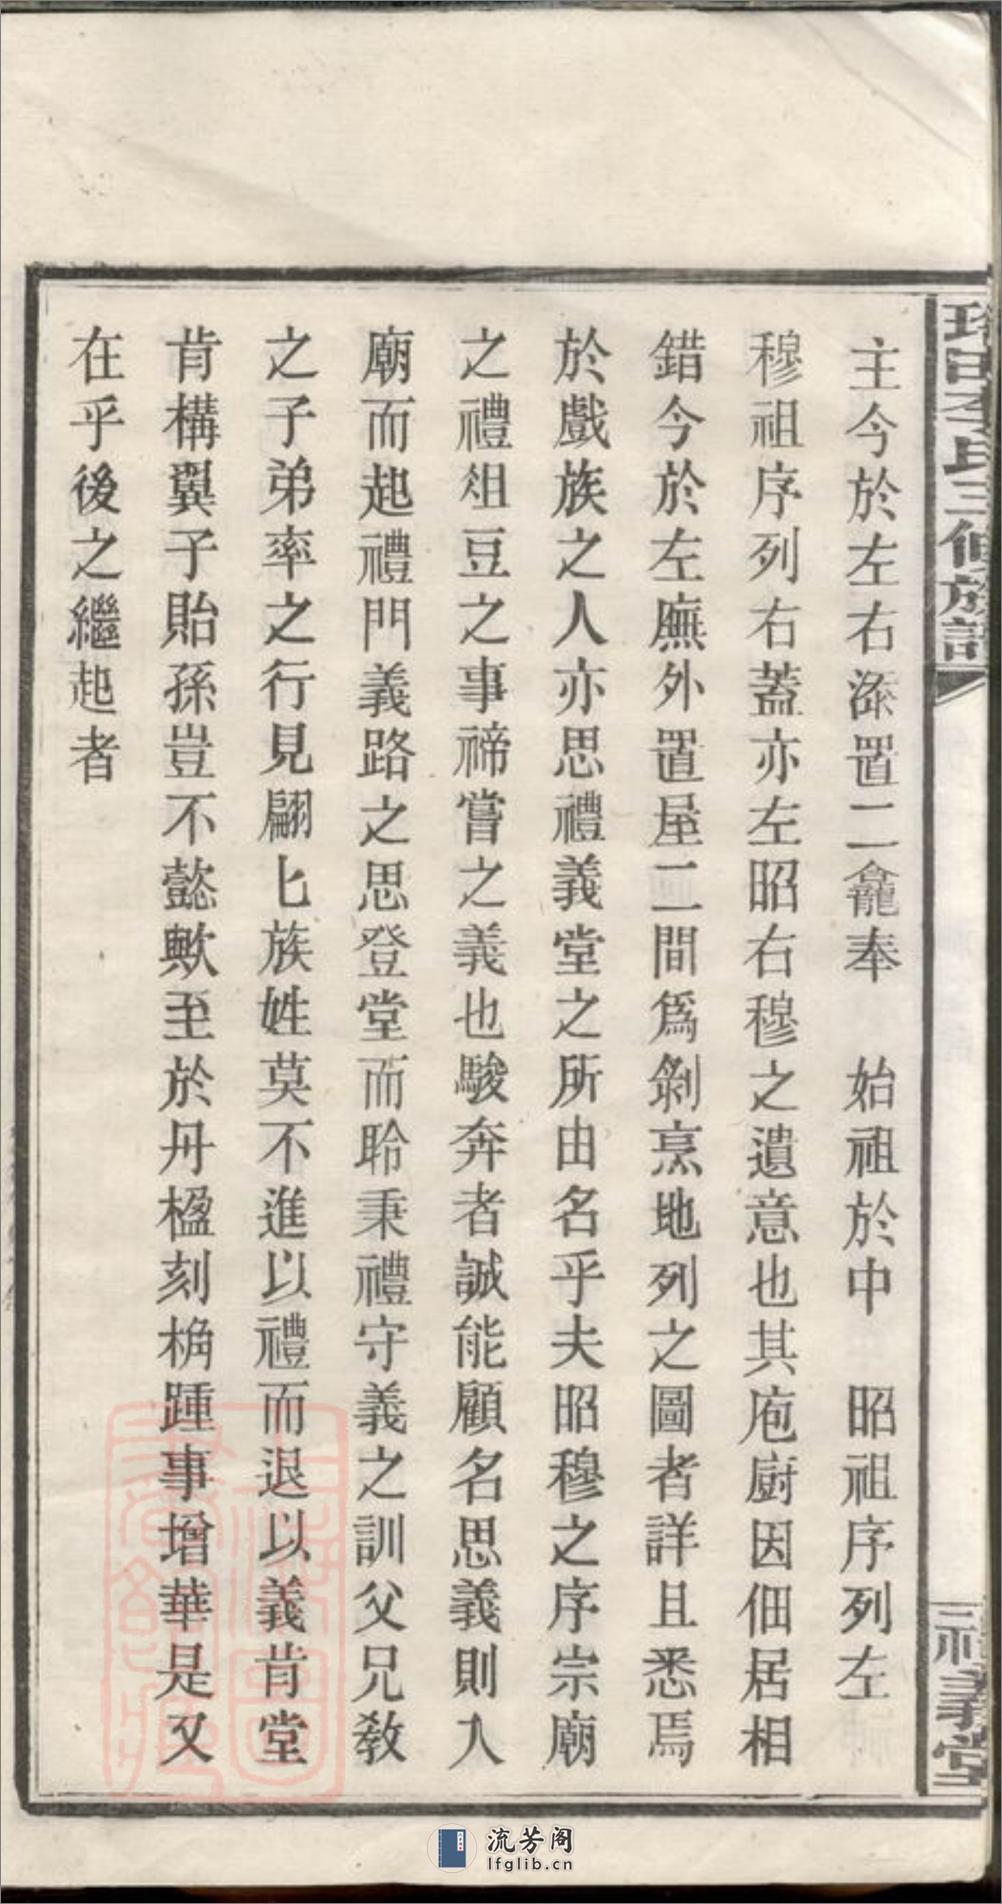 主今於左右添置二龕奉　始祖於中　昭祖序列左
穆祖序列右蓋亦左昭右穆之遺意也其庖廚因佃居相
錯今於左廡外置屋二間爲剝烹地列之圖者詳且悉焉
於戲族之人亦思禮義堂之所由名乎夫昭穆之序宗廟
之禮俎豆之事禘嘗之義也駿奔者誠能顧名思義則入
廟而起禮門義路之思登堂而聆秉禮守義之訓父兄教
之子弟率之行見翩匕族姓莫不進以禮而退以義肯堂
肯構翼子貽孫豈不懿歟至於丹楹刻桷踵事增華是又
在乎後之繼起者
李氏三修族譜
禮義堂
流芳阁
lfglib.cn